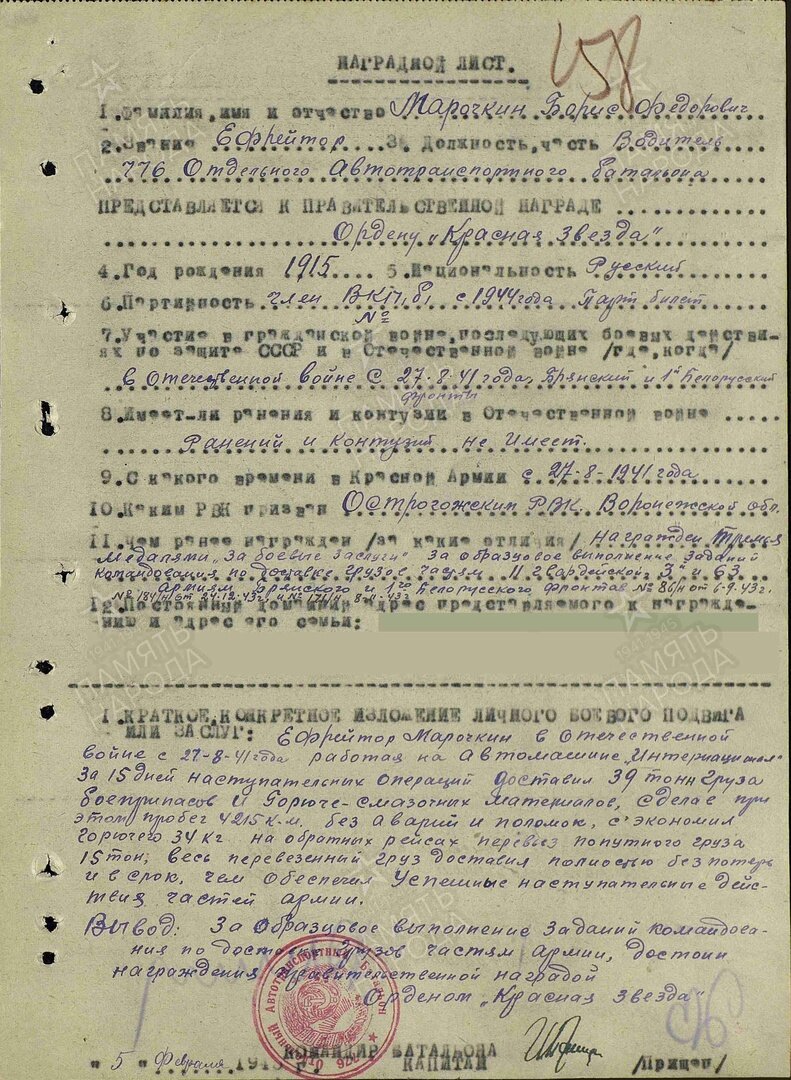 458
НАГРАДНОЙ ЛИСТ.
1. Фамилия, имя и отчество Марочкин Борис Федорович
2. Звание Ефрейтор 3. Должность, часть Водитель
776 Отдельного Автотранспортного батальона
ПРЕДСТАВЛЯЕТСЯ К ПРАВИТЕЛЬСТВЕННОЙ НАГРАДЕ
Ордену „Красная Звезда"
4. Год рождения 1915 5. Национальность Русский
6. Партийность член ВКП/б/ с 1944 года Парт билет
№
7. Участие в гражданской войне, последующих боевых действи-
ях по защите СССР и в Отечественной войне /где, когда/
в Отечественной войне с 27-8-41 года, Брянский и 1й Белорусский
фронты
8. Имеет-ли ранения и контузии в Отечественной войне
Ранений и Контузий не Имеет.
9. С какого времени в Красной Армии с 27-8-1941 года
10. Каким РВК призван Острогожским РВК. Воронежской обл.
11. Чем ранее награжден /за какие отличия/ Награжден Тремя
Медалями „За боевые заслуги" за образцовое выполнение заданий
командования по доставке грузов частям 11 гвардейской, 3й и 63
Армиям Брянского и 1го Белорусского фронтов № 86/н от 6-9-43г.
№ 184/н от 24-12-43г. и № 171/н 8-11-43г
12. Постоянный домашний адрес представляемого к награжде-
нию и адрес его семьи:
1. КРАТКОЕ, КОНКРЕТНОЕ ИЗЛОЖЕНИЕ ЛИЧНОГО БОЕВОГО ПОДВИГА
ИЛИ ЗАСЛУГ: Ефрейтор Марочкин в Отечественной
войне с 27-8-41 года работая на Автомашине „Интернационал"
За 15 дней наступательных операций доставил 39 тонн груза
боеприпасов и Горюче-смазочных материалов, сделав при
этом пробег 4215 к-м. без аварий и поломок, с'экономил
горючего 34 кг на обратных рейсах перевез попутного груза
15 тон, весь перевезенный груз доставил полностью без потерь
и в срок, чем обеспечил успешные наступательные дейс-
твия частей армии.
Вывод: За образцовое выполнение заданий командова-
ния по доставки грузов частям армии, достоин
награждения правительственной наградой
Орденом „Красная Звезда"
КОМАНДИР БАТАЛЬОНА
"5" Февраля 1945 г. КАПИТАН /Прищеп/
ПАМЯТЬ НАРОДА
1941-1945